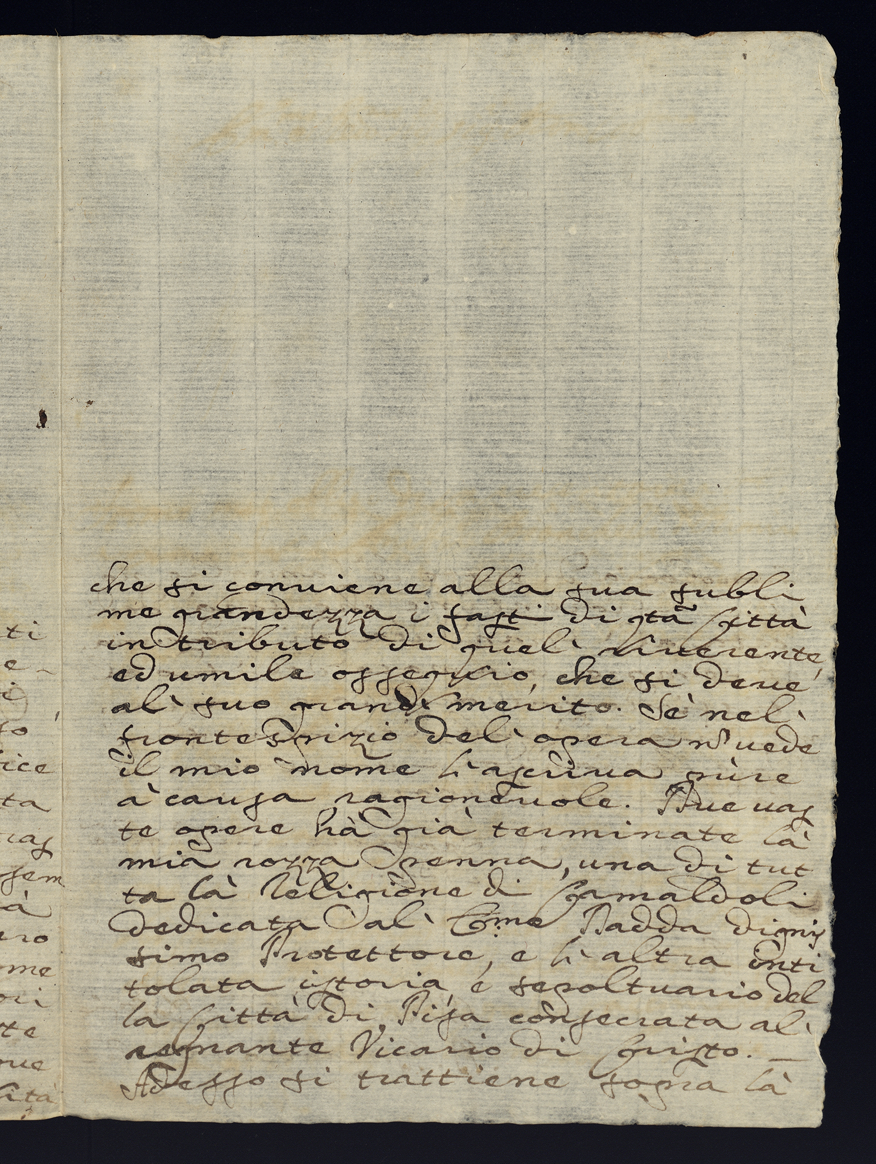 che si conuiene alla sua subli
me grandezza i fasti di qta Città
in tributo di quel' riuerente,
ed umile ossequio, che si deue
al' suo grand' merito. Se nel'
frontespizio del' opera n̄ uede
il mio nome l'ascriua pure
à causa ragioneuole. Due uas
te opere hà già terminate la
mia rozza penna, una di tut
ta la Religione di Camaldoli
dedicata al' Emo Radda dignis
simo Protettore, e l'altra inti
tolata istoria, e sepoltuario del
la Città di Pisa consecrata al'
regnante Vicario di Cristo. —
Adesso si trattiene sopra la
ti
e
i
so
ice
ta
ras
ssem
à
ro
ome
ori
te
nue
lità